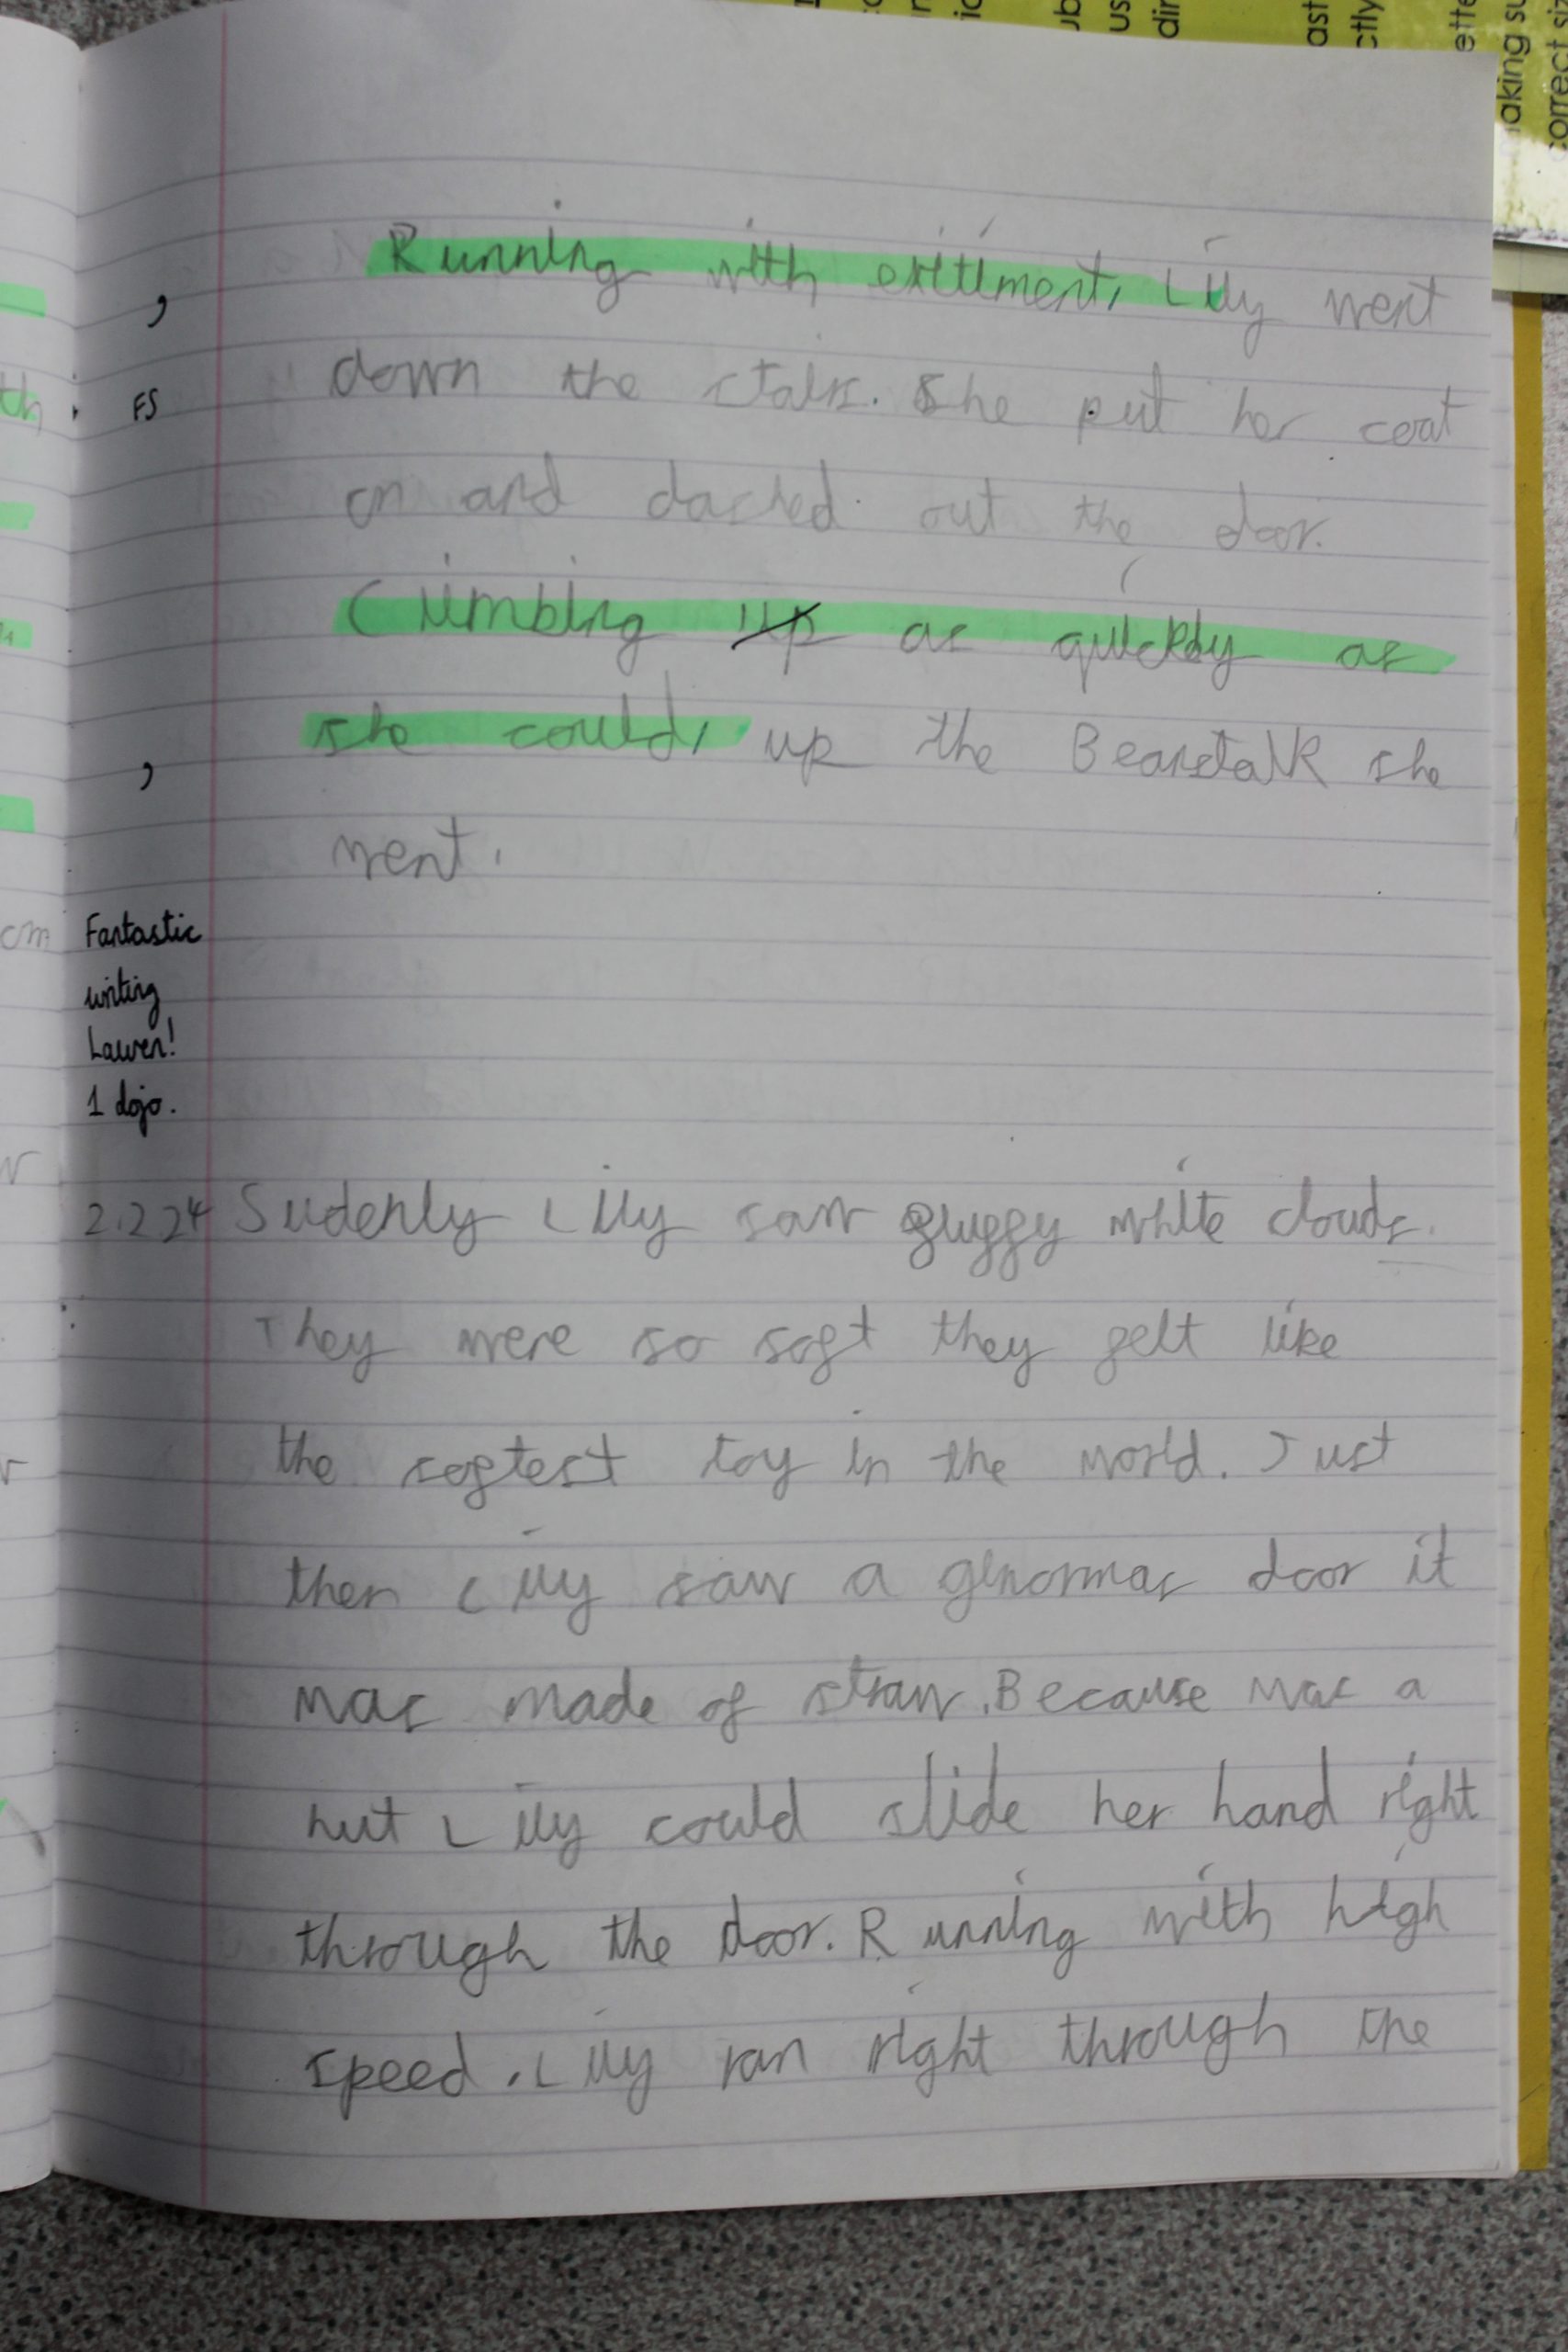 Running with exitiment, Lilly went
,
down the stairs. She put her coat
FS
on and dashed out the door.
Climbing up as quickly as
she could, up the Beanstalk she
,
went.
Fantastic
writing
Lauren!
1 dojo.
2.2.24 Sudenly Lilly saw fluffy white clouds.
They were so soft they felt like
the softest toy in the world. Just
then Lilly saw a genormas door it
was made of straw. Because was a
hut Lilly could slide her hand right
through the door. Running with high
speed. Lilly ran right through the